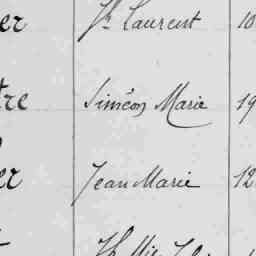 er Jh Laurent 10
tre Siméon Marie 19
er Jean Marie 12